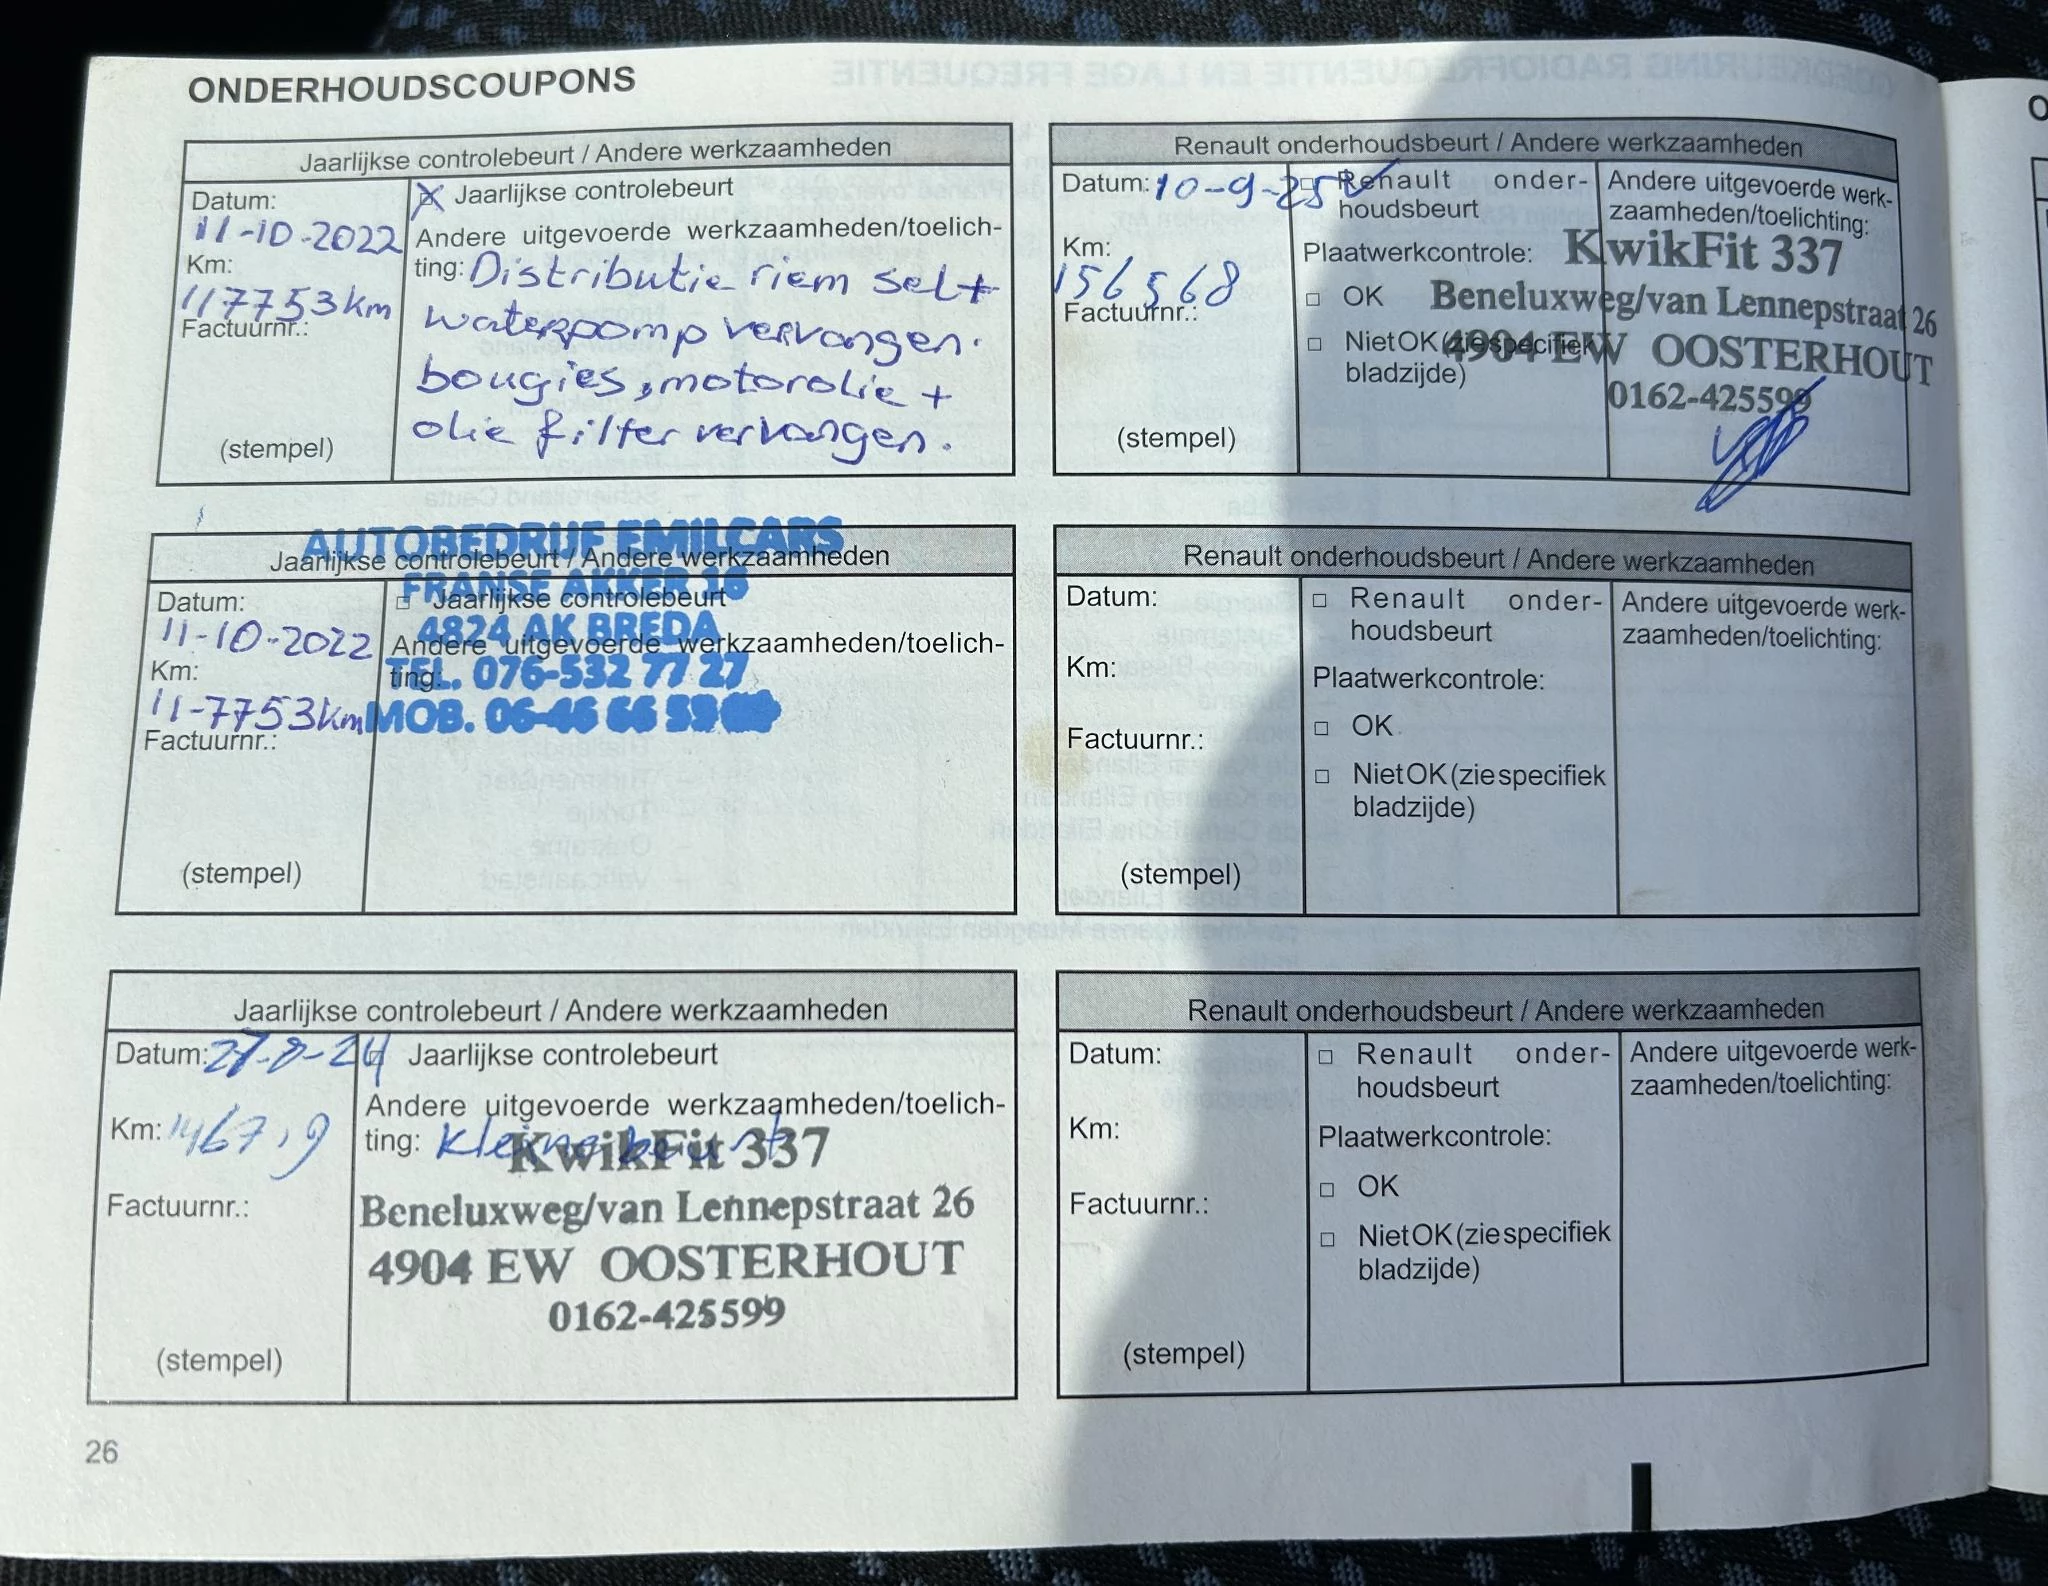 ONDERHOUDSCOUPONS
Jaarlijkse controlebeurt / Andere werkzaamheden
Datum:
11-10-2022
Km:
117753km
Factuurnr.:
(stempel)
Jaarlijkse controlebeurt
Andere uitgevoerde werkzaamheden/toelich-
ting: Distributie riem set+
waterpomp vervangen.
bougies, motorolie +
olie filter vervangen.
Jaarlijkse controlebeurt / Andere werkzaamheden
Datum:
11-10-2022
Km:
11-7753km
Factuurnr.:
(stempel)
Jaarlijkse controlebeurt
Andere uitgevoerde werkzaamheden/toelich-
ting:
AUTOBEDRIJF EMILCARS
FRANSE AKKER 16
4824 AK BREDA
TEL. 076-532 77 27
MOB. 06-46 66
Jaarlijkse controlebeurt / Andere werkzaamheden
Datum: 27-8-24
Km: 1467,9
Factuurnr.:
(stempel)
Jaarlijkse controlebeurt
Andere uitgevoerde werkzaamheden/toelich-
ting: kleine beurt
KwikFit 337
Beneluxweg/van Lennepstraat 26
4904 EW OOSTERHOUT
0162-425599
Renault onderhoudsbeurt / Andere werkzaamheden
Datum: 10-9-25
Km:
156568
Factuurnr.:
(stempel)
Renault onder-
houdsbeurt
Plaatwerkcontrole:
OK
Niet OK (zie specifiek
bladzijde)
Andere uitgevoerde werk-
zaamheden/toelichting:
KwikFit 337
Beneluxweg/van Lennepstraat 26
4904 EW OOSTERHOUT
0162-425599
Renault onderhoudsbeurt / Andere werkzaamheden
Datum:
Km:
Factuurnr.:
(stempel)
Renault onder-
houdsbeurt
Plaatwerkcontrole:
OK
Niet OK (zie specifiek
bladzijde)
Andere uitgevoerde werk-
zaamheden/toelichting:
Renault onderhoudsbeurt / Andere werkzaamheden
Datum:
Km:
Factuurnr.:
(stempel)
Renault onder-
houdsbeurt
Plaatwerkcontrole:
OK
Niet OK (zie specifiek
bladzijde)
Andere uitgevoerde werk-
zaamheden/toelichting:
26